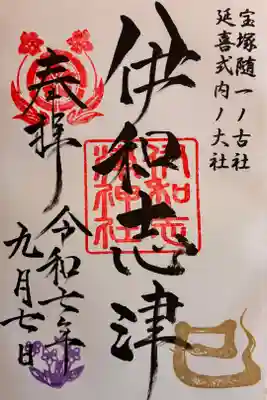 宝塚随一ノ古社
延喜式内ノ大社
伊和志津
伊和志津神社
奉拝
令和七年
九月七日
巳